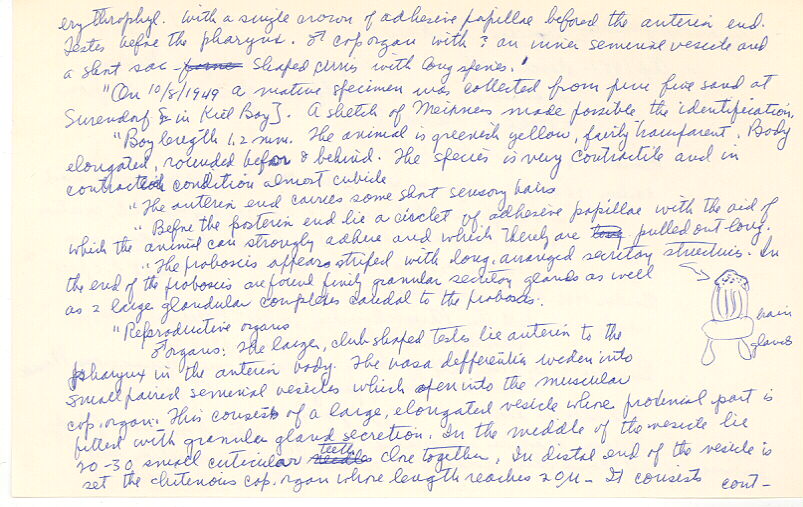 erythrophyl. With a single crown of adhesive papillae before the anterior end.
Testes before the pharynx. ♂ cop organ with ? an inner semenal vesicle and
a short sac - shaped penis with long spines."
"On 10/8/1949 a mature specimen was collected from pure fine sand at
Surendorf [in Kiel Bay]. A sketch of Meixner's made possible the identification.
"Boy length 1.2 mm. The animal is greenish yellow, fairly transparent. Body
elongated, rounded before & behind. The species is very contractile and in
contraction condition almost cubicle
"The anterior end carries some short sensory hairs
"Before the posterior end lie a circlet of adhesive papillae with the aid of
which the animal can strongly adhere and which thereby are pulled out long.
"The proboscis appears striped with long, arranged secretory structures. In
the end of the proboscis are found finely granular secretory glands as well
as 2 large glandular complexes caudal to the proboscis.
brain
glands
"Reproductive organs
♂ organs: The larger, club shaped testes lie anterior to the
pharynx in the anterior body. The vasa defferentia widen into
small paired semenal vesicles which open into the muscular
cop. organ. This consists of a large, elongated vesicle whose proximal part is
filled with granular gland secretion. In the middle of the vesicle lie
20-30 small cuticular teeth close together. In distal end of the vesicle is
set the chitenous cop. organ whose length reaches 20µ - It consists cont-